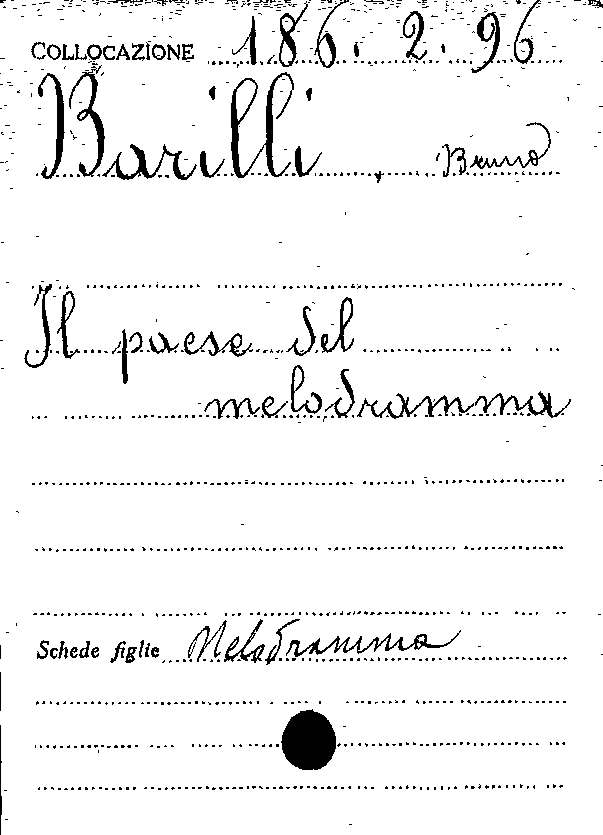 COLLOCAZIONE 186.2.96
Barilli, Bruno
Il paese del
melodramma
Schede figlie Melodramma